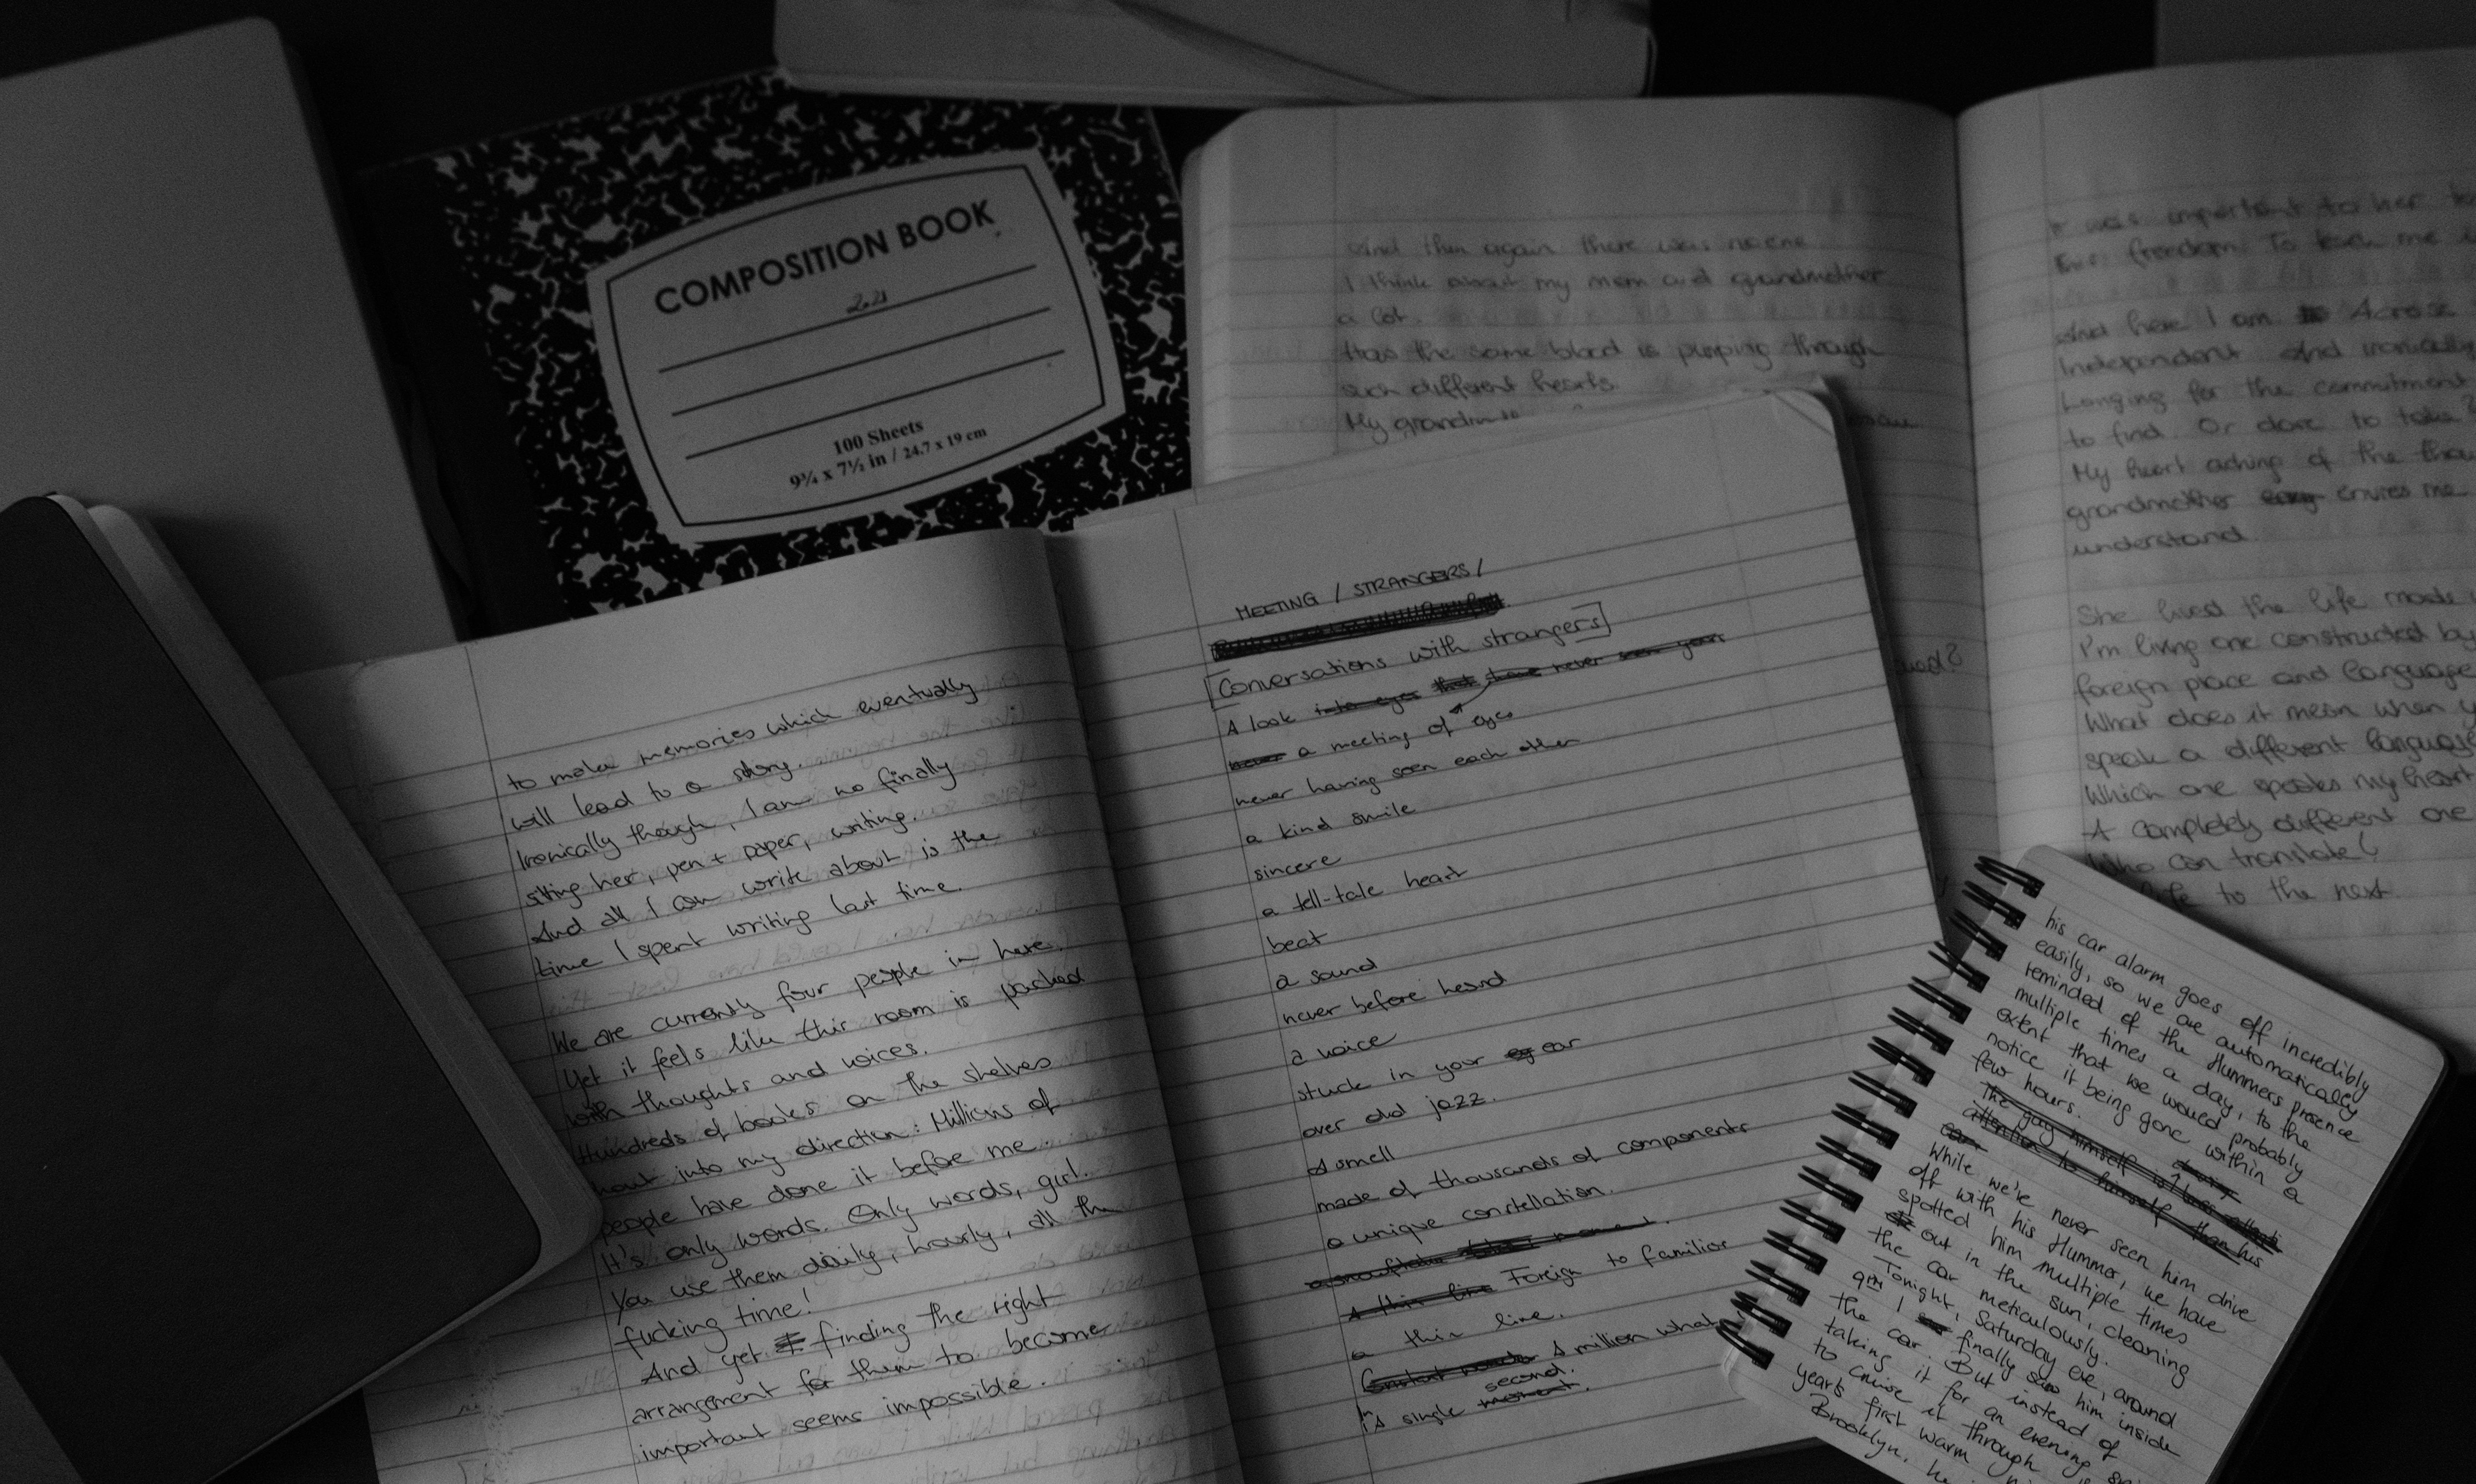 COMPOSITION BOOK
100 Sheets
9¾ x 7½ in / 24.7 x 19 cm
And then again there was no one
I think about my mom and grandmother
a lot.
How the same blood is pumping through
such different hearts.
My
It was important to her to
freedom. To teach me
And here I am Across
Independent And ironically
Longing for the commitment
to find. Or dare to take?
My heart aching of the
grandmother envies me
understand.
She lived the life made
I'm living one constructed by
foreign place and language
What does it mean when
speak a different language
Which one speaks my heart
A completely different one
Who can translate
to the next.
to make memories which eventually
will lead to a story.
Ironically though, I am no finally
sitting her, pen + paper, writing.
And all I can write about is the
time I spent writing last time.
We are currently four people in here.
Yet it feels like this room is packed
with thoughts and voices.
Hundreds of books on the shelves
into my direction: Millions of
people have done it before me.
It's only words. Only words, girl.
You use them daily, hourly, all the
fucking time!
And yet finding the right
arrangement for them to become
important seems impossible.
MEETING / STRANGERS /
[Conversations with strangers]
A look into eyes that have never seen yours
never a meeting of eyes
never having seen each other
a kind smile
sincere
a tell-tale heart
beat
a sound
never before heard
a voice
stuck in your ear
over old jazz.
A smell
made of thousands of components
a unique constellation.
a snowflake moment.
A thin line Foreign to familiar
a thin line.
Constant A million what
second.
A single moment.
his car alarm goes off incredibly
easily, so we are automatically
reminded of the Hummers presence
multiple times a day, to the
extent that we would probably
notice it being gone within a
few hours.
The guy himself is
attention to himself than his
car.
While we've never seen him drive
off with his Hummer, we have
spotted him multiple times
out in the sun, cleaning
the car meticulously.
Tonight, Saturday eve, around
9pm I finally saw him inside
the car. But instead of
taking it for an evening
to cruise it through
years first warm
Brooklyn, he